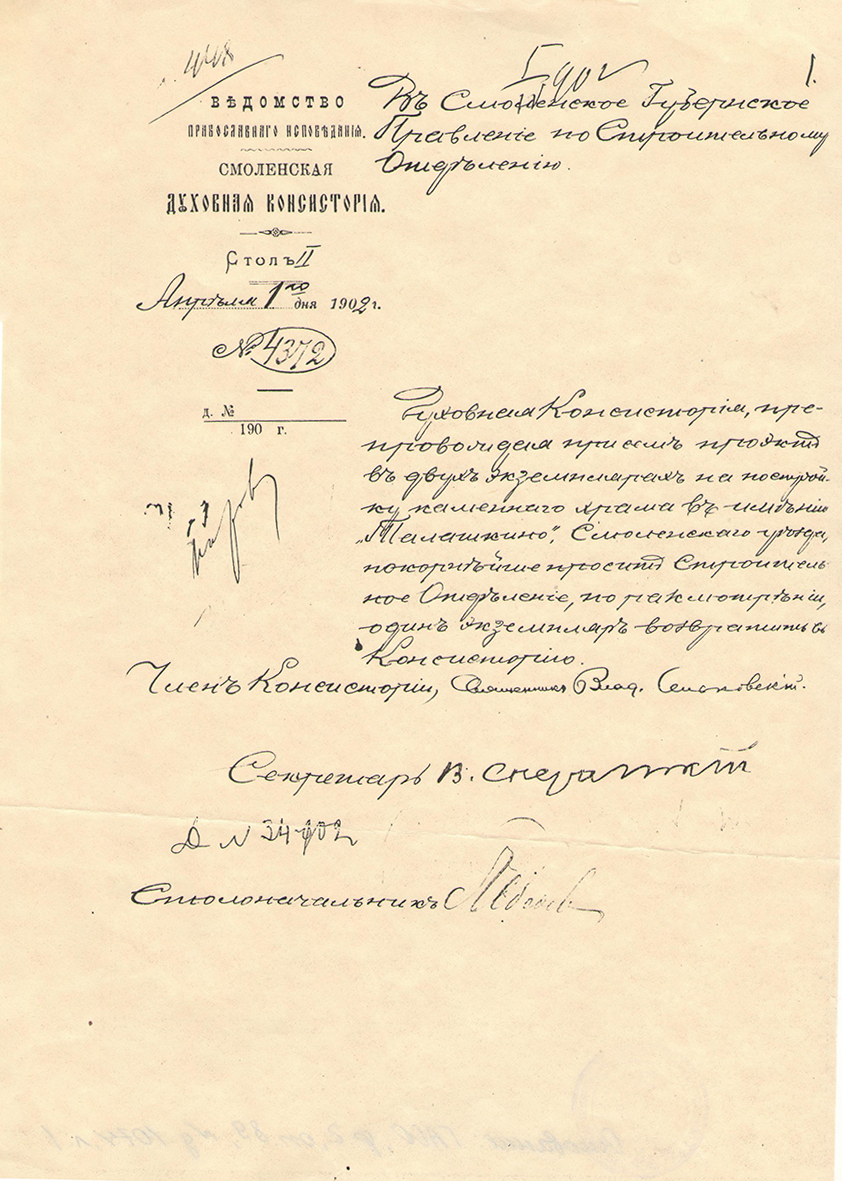 448
I 902
1.
ВѢДОМСТВО
ПРАВОСЛАВНАГО ИСПОВѢДАНІЯ.
СМОЛЕНСКАЯ
ДУХОВНАЯ КОНСИСТОРІЯ.
Столъ II
Апрѣля 1го дня 1902 г.
№ 4372
д. №
190 г.
Въ Смоленское Губернское
Правленіе по Строительному
Отдѣленію.
Духовная Консисторія, пре-
провождая при семъ проэктъ
въ двухъ экземплярахъ на построй-
ку каменнаго храма въ имѣніи
„Талашкино", Смоленскаго уѣзда,
покорнѣйше проситъ Строитель-
ное Отдѣленіе, по разсмотрѣніи,
одинъ экземпляръ возвратить въ
Консисторію.
Членъ Консисторіи, Священникъ Влад.
Секретарь В. Сперанскій
Д N 34-902
Столоначальникъ